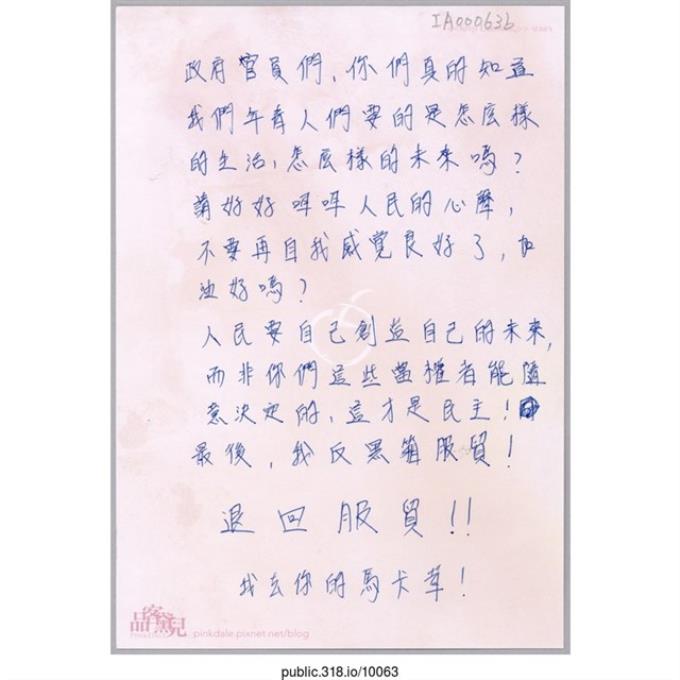 IA000636
政府官員們、你們真的知道
我們年青人們要的是怎麼樣
的生活,怎麼樣的未來嗎?
請好好呼呼人民的心聲,
不要再自我感覺良好了,加
油好嗎?
人民要自己創造自己的未來,
而非你們這些當權者能隨
意決定的,這才是民主!
最後,我反黑箱服貿!
退回服貿!!
我去你的馬卡茸!
品客黛兒
PINKDALE
pinkdale.pixnet.net/blog
public.318.io/10063